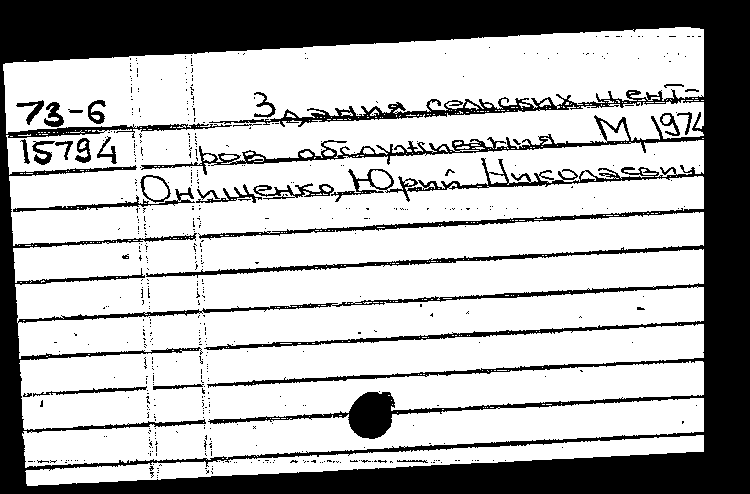 73-6 Здания сельских цент-
15794 ров обслуживания. М., 1974
Онищенко, Юрий Николаевич